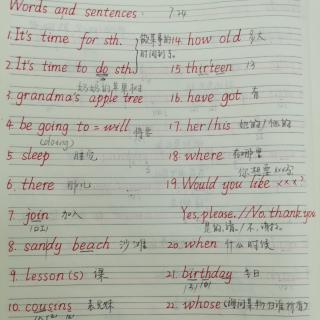 Words and sentences
1. It's time for sth. 做某事的
2. It's time to do sth. 时间到了.
奶奶的苹果树
3. grandma's apple tree
4. be going to = will 将要
(doing)
5. sleep 睡觉
6. there 那儿
7. join 加入
8. sandy beach 沙滩
9. lesson(s) 课
10. cousins 表兄妹
14. how old 多大
15. thirteen 13
16. have got 有
17. her/his 她的/他的
18. where 在哪里
你想要xx吗
19. Would you like xxx?
Yes, please. / No, thank you
是的,请。/不,谢谢。
20. when 什么时候
21. birthday 生日
22. whose